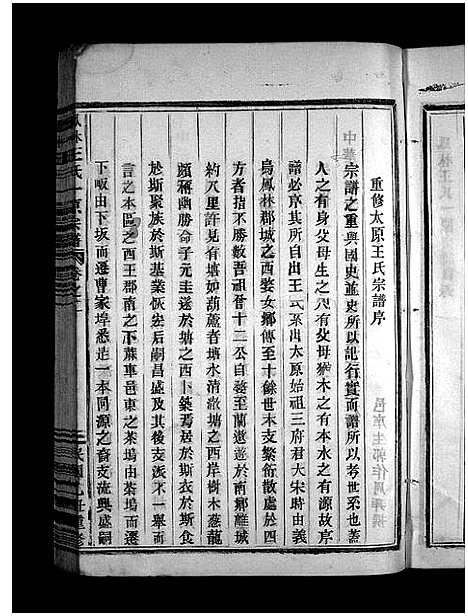 重修太原王氏宗譜序
宗譜之重與國史並史所以記行實而譜所以考世系蓋
人之有身父母生之然有父母猶木之有本水之有源故序
譜必京其所自出王氏出太原始祖三府君大宋時由義
烏鳳林郡城之西婺女鄉傳至十餘世本支繁衍散處於四
方者指不勝數吾祖晉十二公自義至蘭遨遊於南鄉離城
約八里許見有塘如葫蘆者塘水清澈塘之西岸樹木葱蘢
頗稱幽勝命子元圭遂於塘之西卜築焉居於斯衣於斯食
於斯聚族於斯基業恢宏后嗣昌盛及其支派不一舉而
言之本區之西王郡南之下蔴車邑東之茶塢由茶塢而遷
下畈由下坂而遷曹家埠悉是一本同源之裔支流興盛嗣
王氏宗譜